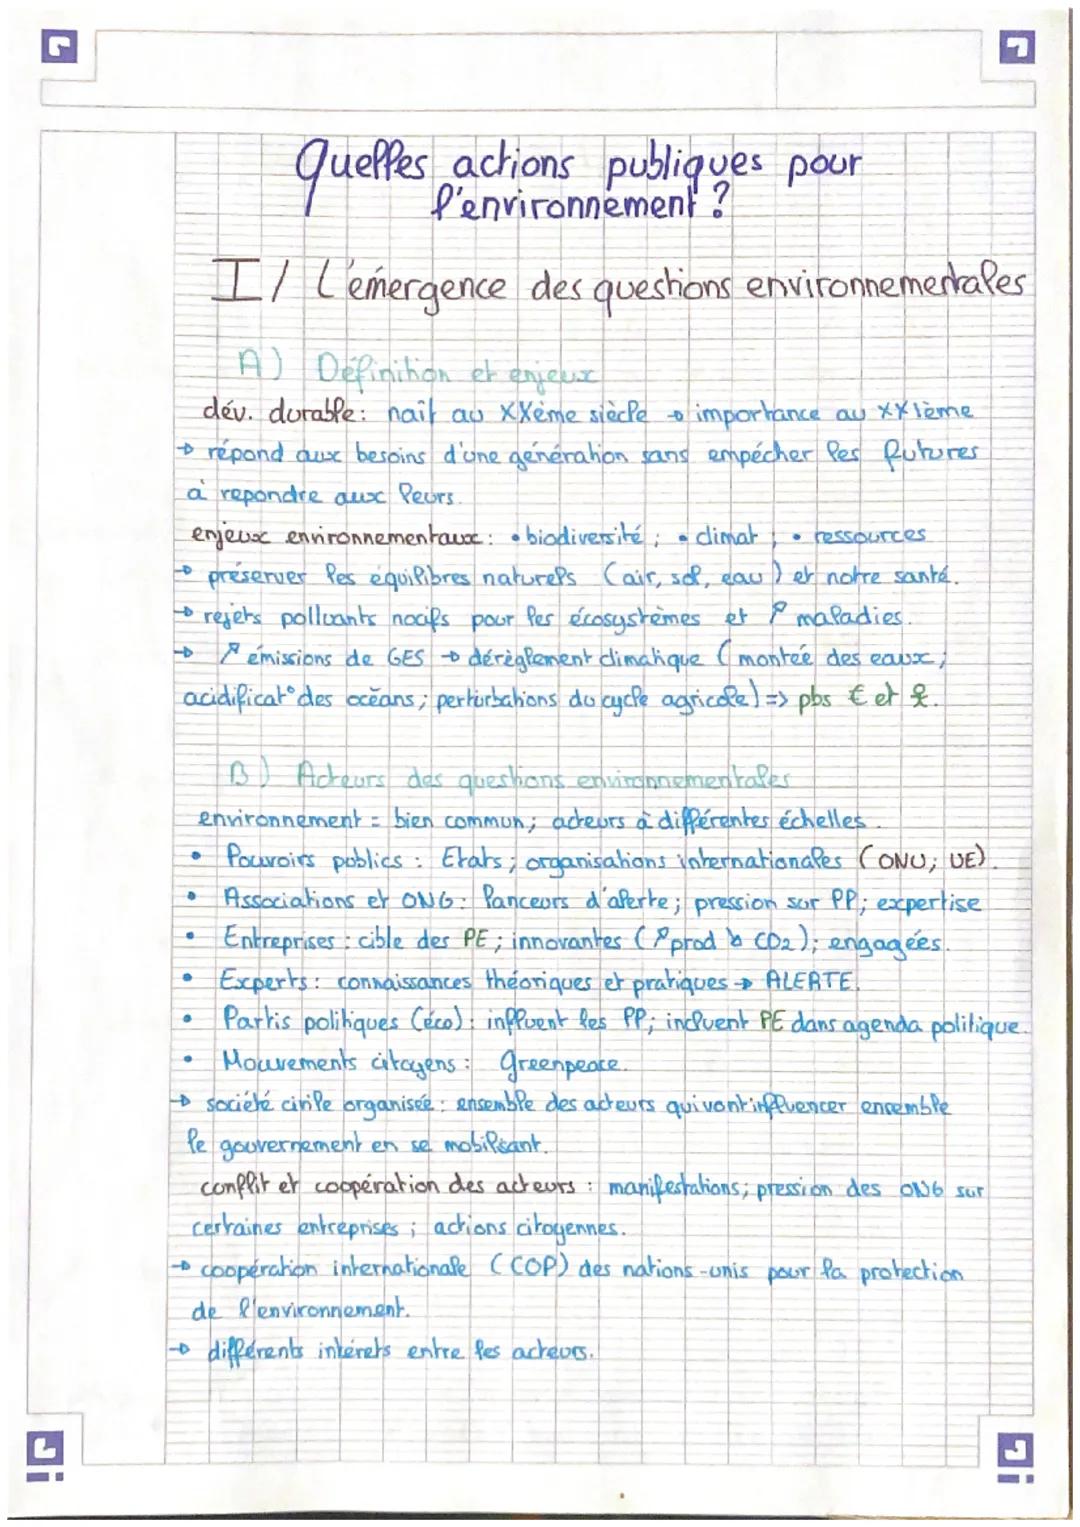 Quelles actions publiques pour
l'environnement ?
I/ L'émergence des questions environnementales
A) Définition et enjeux
dév. durable : naît au XXème siècle → importance au XXIème
→ répond aux besoins d'une génération sans empécher les futures
à repondre aux leurs.
enjeux environnementaux : • biodiversité ; • climat ; • ressources
→ préserver les équilibres naturels (air, sol, eau) et notre santé.
→ rejets polluants nocifs pour les écosystèmes et ↗ maladies.
→ ↗ émissions de GES → dérèglement climatique (montée des eaux ;
acidificat° des océans ; perturbations du cycle agricole) => pbs € et
B) Acteurs des questions environnementales
environnement = bien commun ; acteurs à différentes échelles.
• Pouvoirs publics : Etats ; organisations internationales (ONU ; UE).
• Associations et ONG : lanceurs d'alerte ; pression sur PP ; expertise
• Entreprises : cible des PE ; innovantes (↗ prod ↘ CO2) ; engagées.
• Experts : connaissances théoriques et pratiques → ALERTE.
• Partis politiques (éco) : influent les PP ; incluent PE dans agenda politique.
• Mouvements citoyens : Greenpeace.
→ société civile organisée : ensemble des acteurs qui vont influencer ensemble
le gouvernement en se mobilisant.
conflit et coopération des acteurs : manifestations ; pression des ONG sur
certaines entreprises ; actions citoyennes.
→ coopération internationale (COP) des nations-unis pour la protection
de l'environnement.
→ différents intérets entre les acteurs.